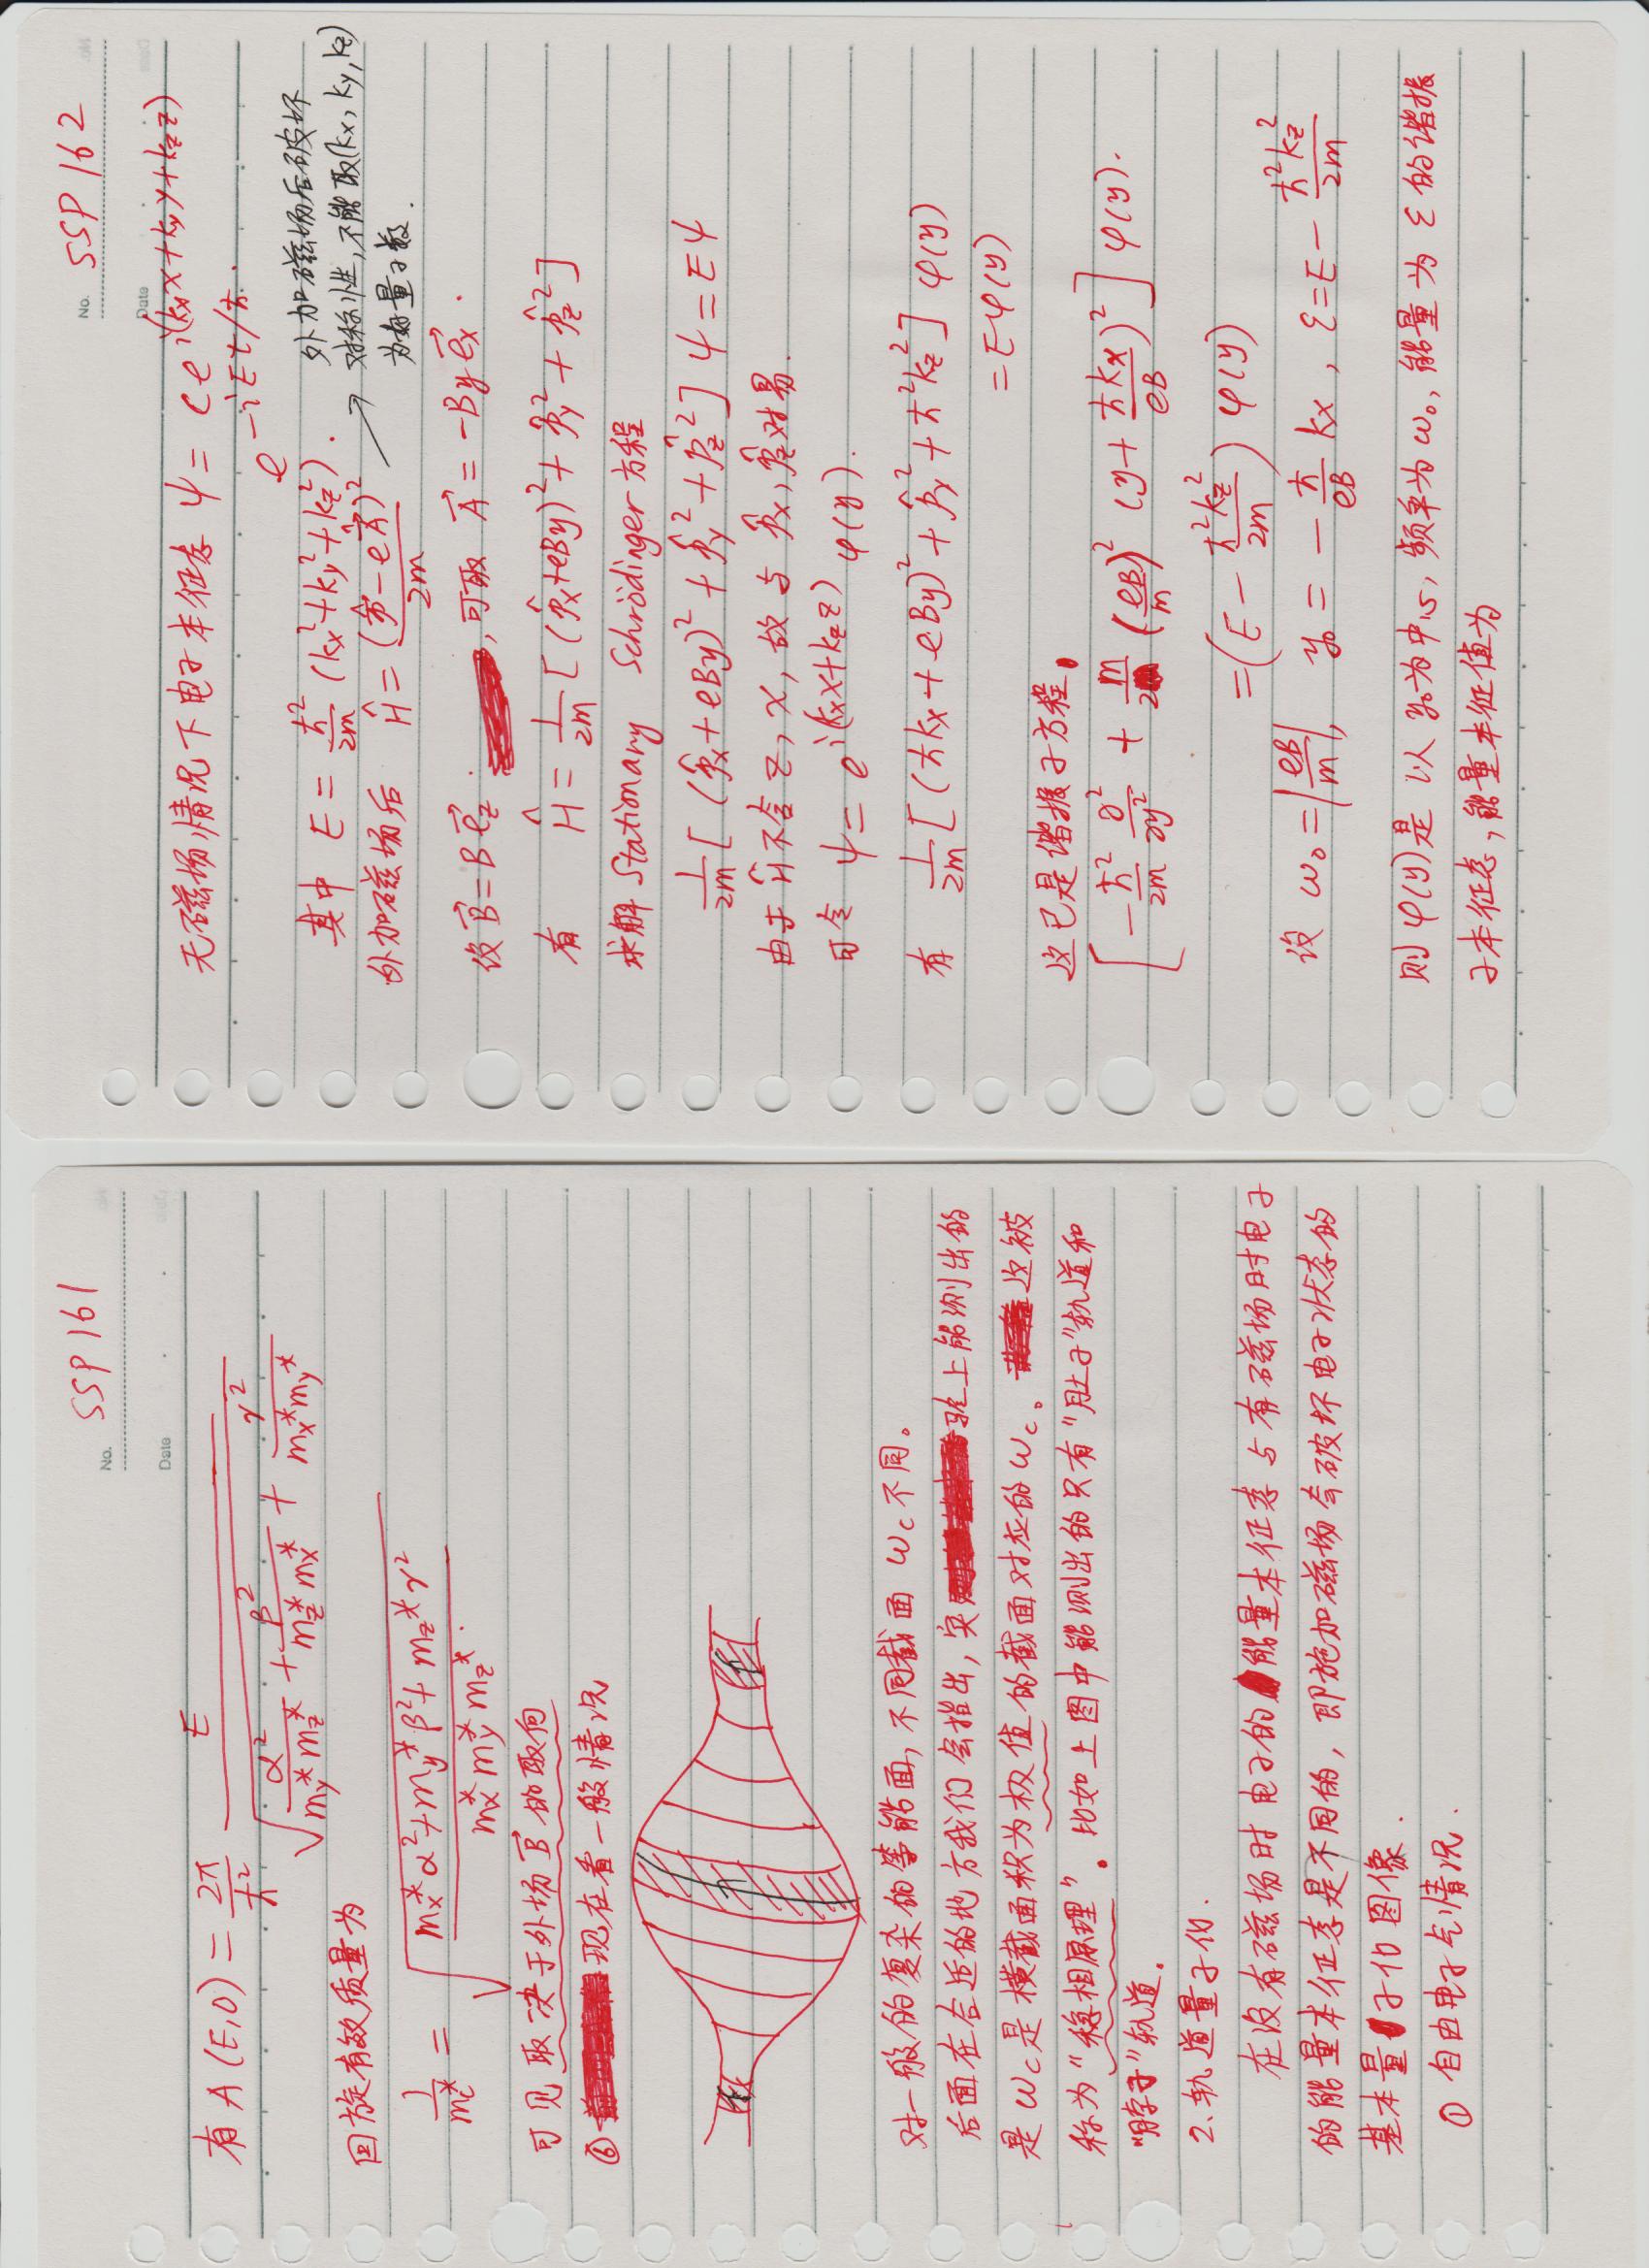 No. SSP 161
Date
有 A(E,0) = \frac{2π}{ħ^2} \frac{E}{\sqrt{\frac{α^2}{m_y^* m_z^*} + \frac{β^2}{m_z^* m_x^*} + \frac{γ^2}{m_x^* m_y^*}}}
回旋有效质量为
\frac{1}{m_c^*} = \sqrt{\frac{m_x^* α^2 + m_y^* β^2 + m_z^* γ^2}{m_x^* m_y^* m_z^*}}.
可见取决于外场 \vec{B} 的取向
⑥ 现在看一般情况
对一般的复杂的等能面, 不同截面 ω_c 不同。
后面在合适的地方我们会指出, 实验上能测出的
是 ω_c 是横截面积为极值的截面对应的 ω_c。 这被
称为“稳相原理”。比如上图中能测出的只有“肚子”轨道和
“脖子”轨道.
2、轨道量子化.
在没有磁场时电子的能量本征态与有磁场时电子
的能量本征态是不同的, 即施加磁场会破坏电子状态的
基本量子化图像.
① 自由电子气情况.
No. SSP 162
Date
无磁场情况下电子本征态 ψ = c e^{i(k_x x + k_y y + k_z z)}
e^{-iEt/ħ}.
其中 E = \frac{ħ^2}{2m} (k_x^2 + k_y^2 + k_z^2).
外加磁场后破坏
对称性, 不能取(k_x, k_y, k_z)
为好量子数.
外加磁场后 \hat{H} = \frac{(\hat{\vec{p}} - e\hat{\vec{A}})^2}{2m}
设 \vec{B} = B\vec{e}_z , 可取 \vec{A} = -By\vec{e}_x.
有 \hat{H} = \frac{1}{2m} [(\hat{p}_x + eBy)^2 + \hat{p}_y^2 + \hat{p}_z^2]
求解 Stationary Schrödinger 方程
\frac{1}{2m} [(\hat{p}_x + eBy)^2 + \hat{p}_y^2 + \hat{p}_z^2] ψ = Eψ
由于 \hat{H} 不含 z, x, 故与 \hat{p}_x, \hat{p}_z 对易.
可令 ψ = e^{i(k_x x + k_z z)} φ(y).
有 \frac{1}{2m} [(ħk_x + eBy)^2 + \hat{p}_y^2 + ħ^2 k_z^2] φ(y)
= Eφ(y)
这已是谐振子方程.
[-\frac{ħ^2}{2m} \frac{∂^2}{∂y^2} + \frac{m}{2} (\frac{eB}{m})^2 (y + \frac{ħk_x}{eB})^2] φ(y).
= (E - \frac{ħ^2 k_z^2}{2m}) φ(y)
设 ω_0 = |\frac{eB}{m}|, y_0 = -\frac{ħ}{eB} k_x, ε = E - \frac{ħ^2 k_z^2}{2m}
则 φ(y) 是以 y_0 为中心, 频率为 ω_0, 能量为 ε 的谐振
子本征态, 能量本征值为